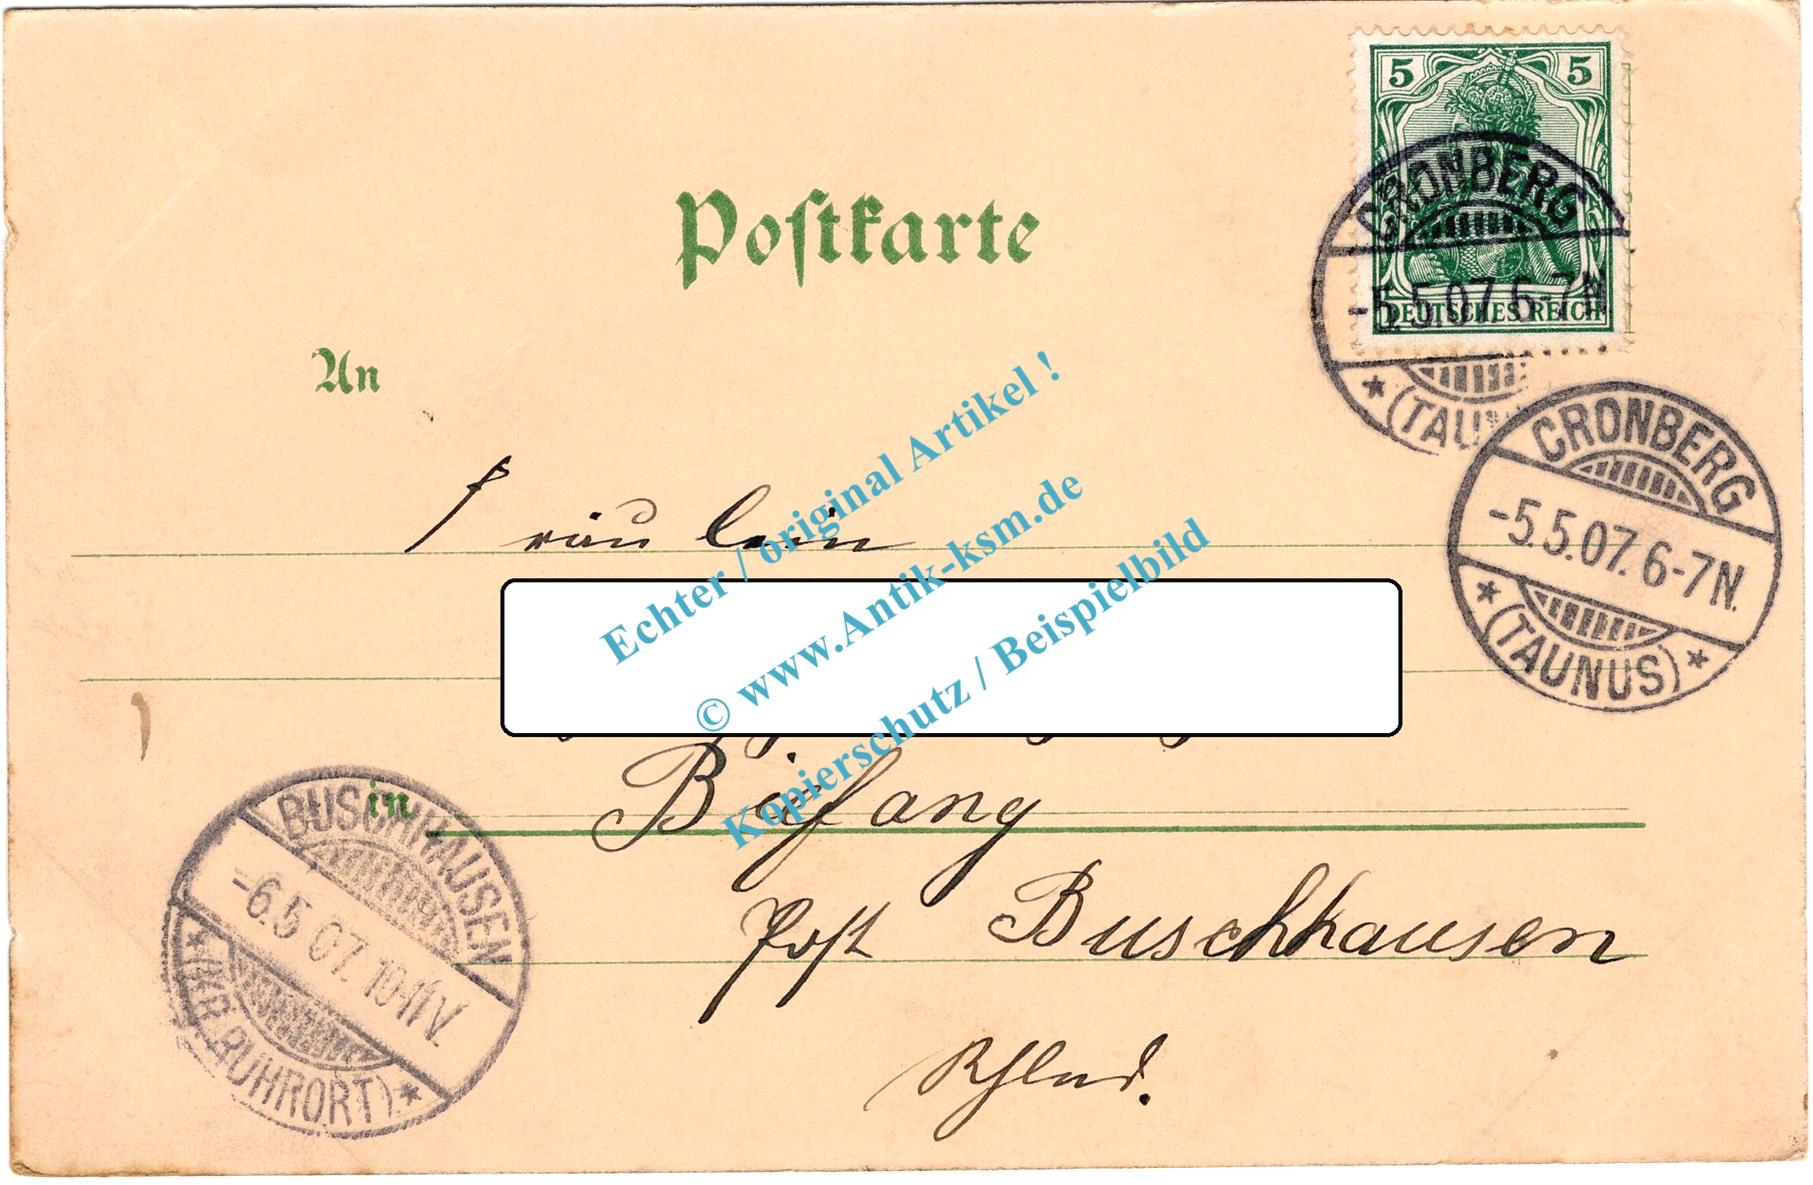 5 5
CRONBERG
-5.5.07.6-7N
DEUTSCHES REICH
* (TAUN
Postkarte
An
CRONBERG
-5.5.07.6-7N.
* (TAUNUS) *
Fräulein
Echter / original Artikel !
© www.Antik-ksm.de
Kopierschutz / Beispielbild
in
Bifang
Post Buschhausen
Rhlnd.
BUSCHHAUSEN
-6.5 07. 10-11V.
* (KR. RUHRORT) *